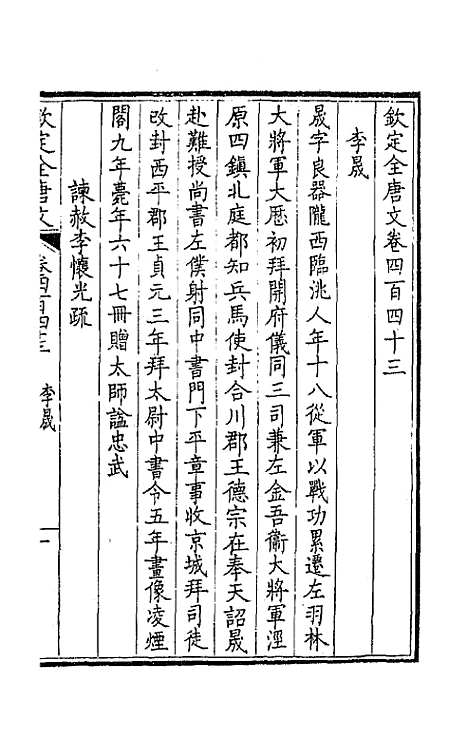 欽定全唐文卷四百四十三
李晟
晟字良器隴西臨洮人年十八從軍以戰功累遷左羽林
大將軍大厯初拜開府儀同三司兼左金吾衛大將軍涇
原四鎮北庭都知兵馬使封合川郡王德宗在奉天詔晟
赴難授尚書左僕射同中書門下平章事收京城拜司徒
改封西平郡王貞元三年拜太尉中書令五年畫像凌煙
閣九年薨年六十七冊贈太師諡忠武
諫赦李懷光疏
欽定全唐文 卷四百四十三 李晟 一